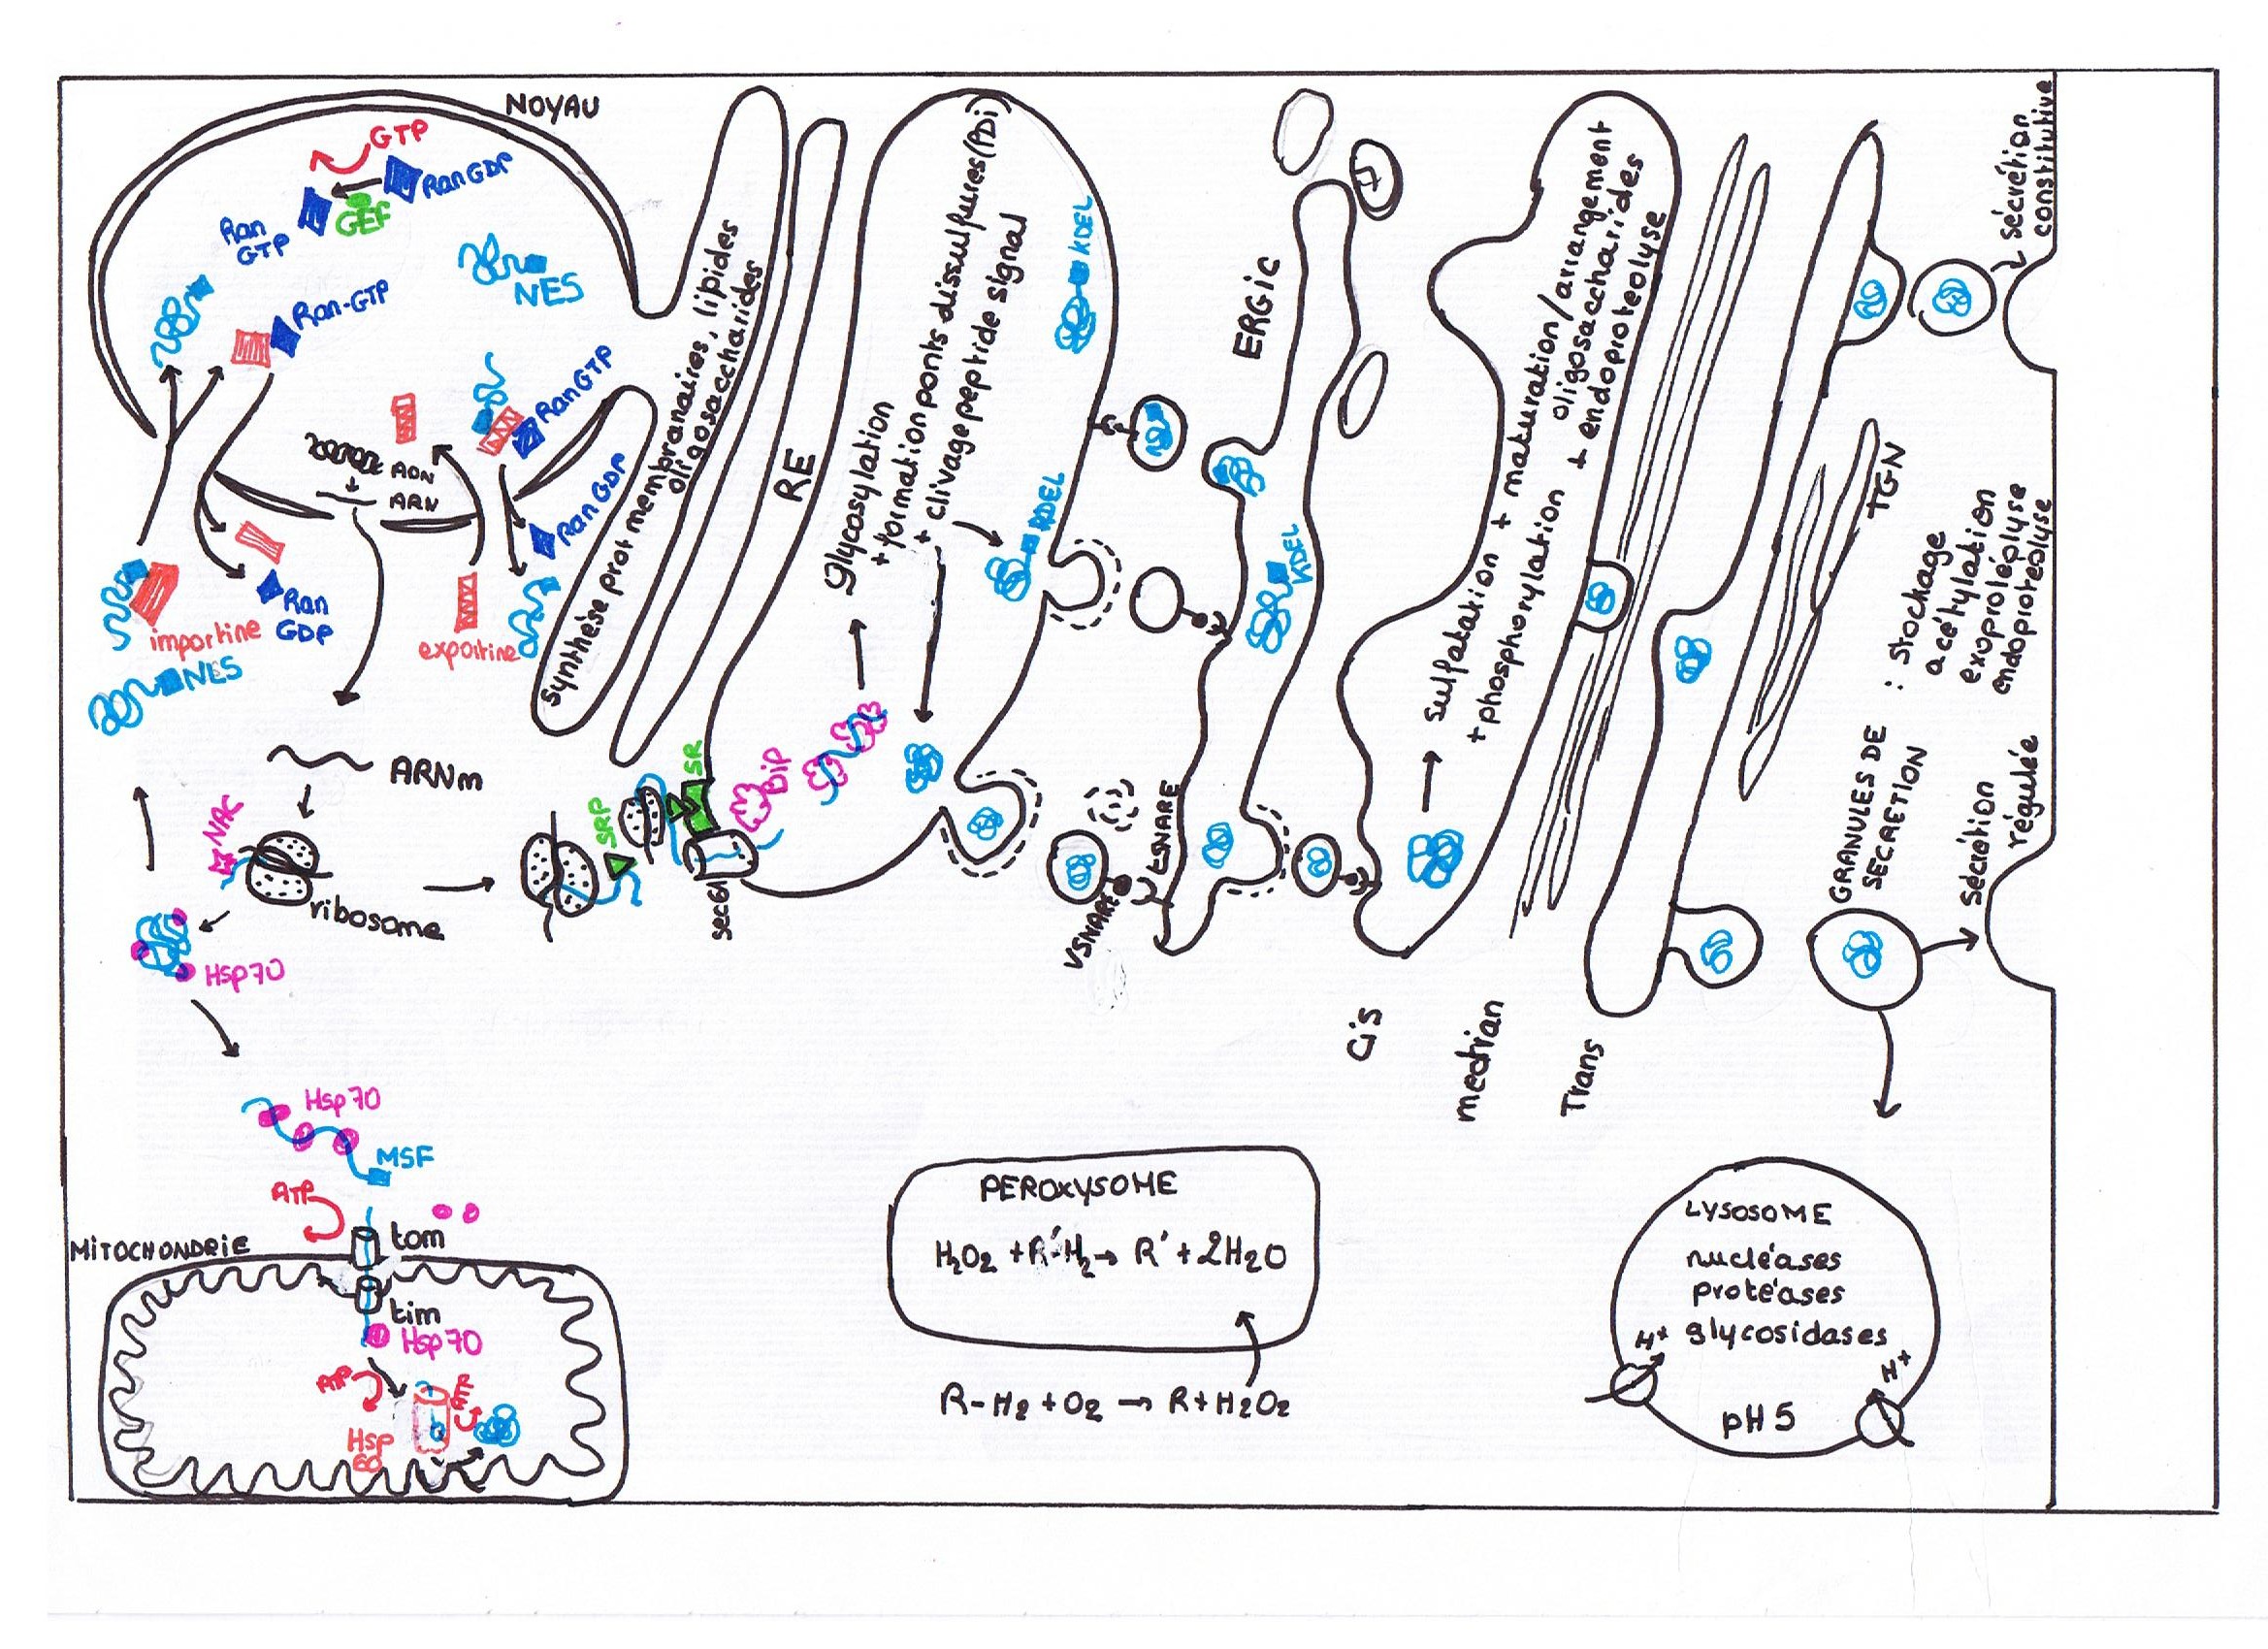 NOYAU
GTP
Ran GDP
GEF
Ran
GTP
NES
Ran-GTP
Ran GTP
ADN
+
ARN
Ran GDP
importine
Ran
GDP
exportine
NLS
ARNm
NAC
ribosome
Hsp70
Hsp70
MSF
ATP
tom
MITOCHONDRIE
tim
Hsp70
ATP
Hsp
60
synthèse prot membranaires, lipides
oligosaccharides
RE
SRP
SR
sec61
BiP
Glycosylation
+ formation ponts dissulfures (PDi)
+ clivage peptide signal
KDEL
KDEL
VSNARE
tSNARE
ERGic
KDEL
sulfatation + maturation/arrangement
oligosaccharides
+ phosphorylation + endoproteolyse
Cis
median
Trans
TGN
GRANULES DE
SECRETION
: stockage
acétylation
exoprotéolyse
endoproteolyse
sécrétion
constitutive
sécrétion
régulée
PEROXYSOME
H2O2 + R'H2 → R' + 2H2O
R-H2 + O2 → R + H2O2
LYSOSOME
nucléases
protéases
glycosidases
H+
H+
pH 5